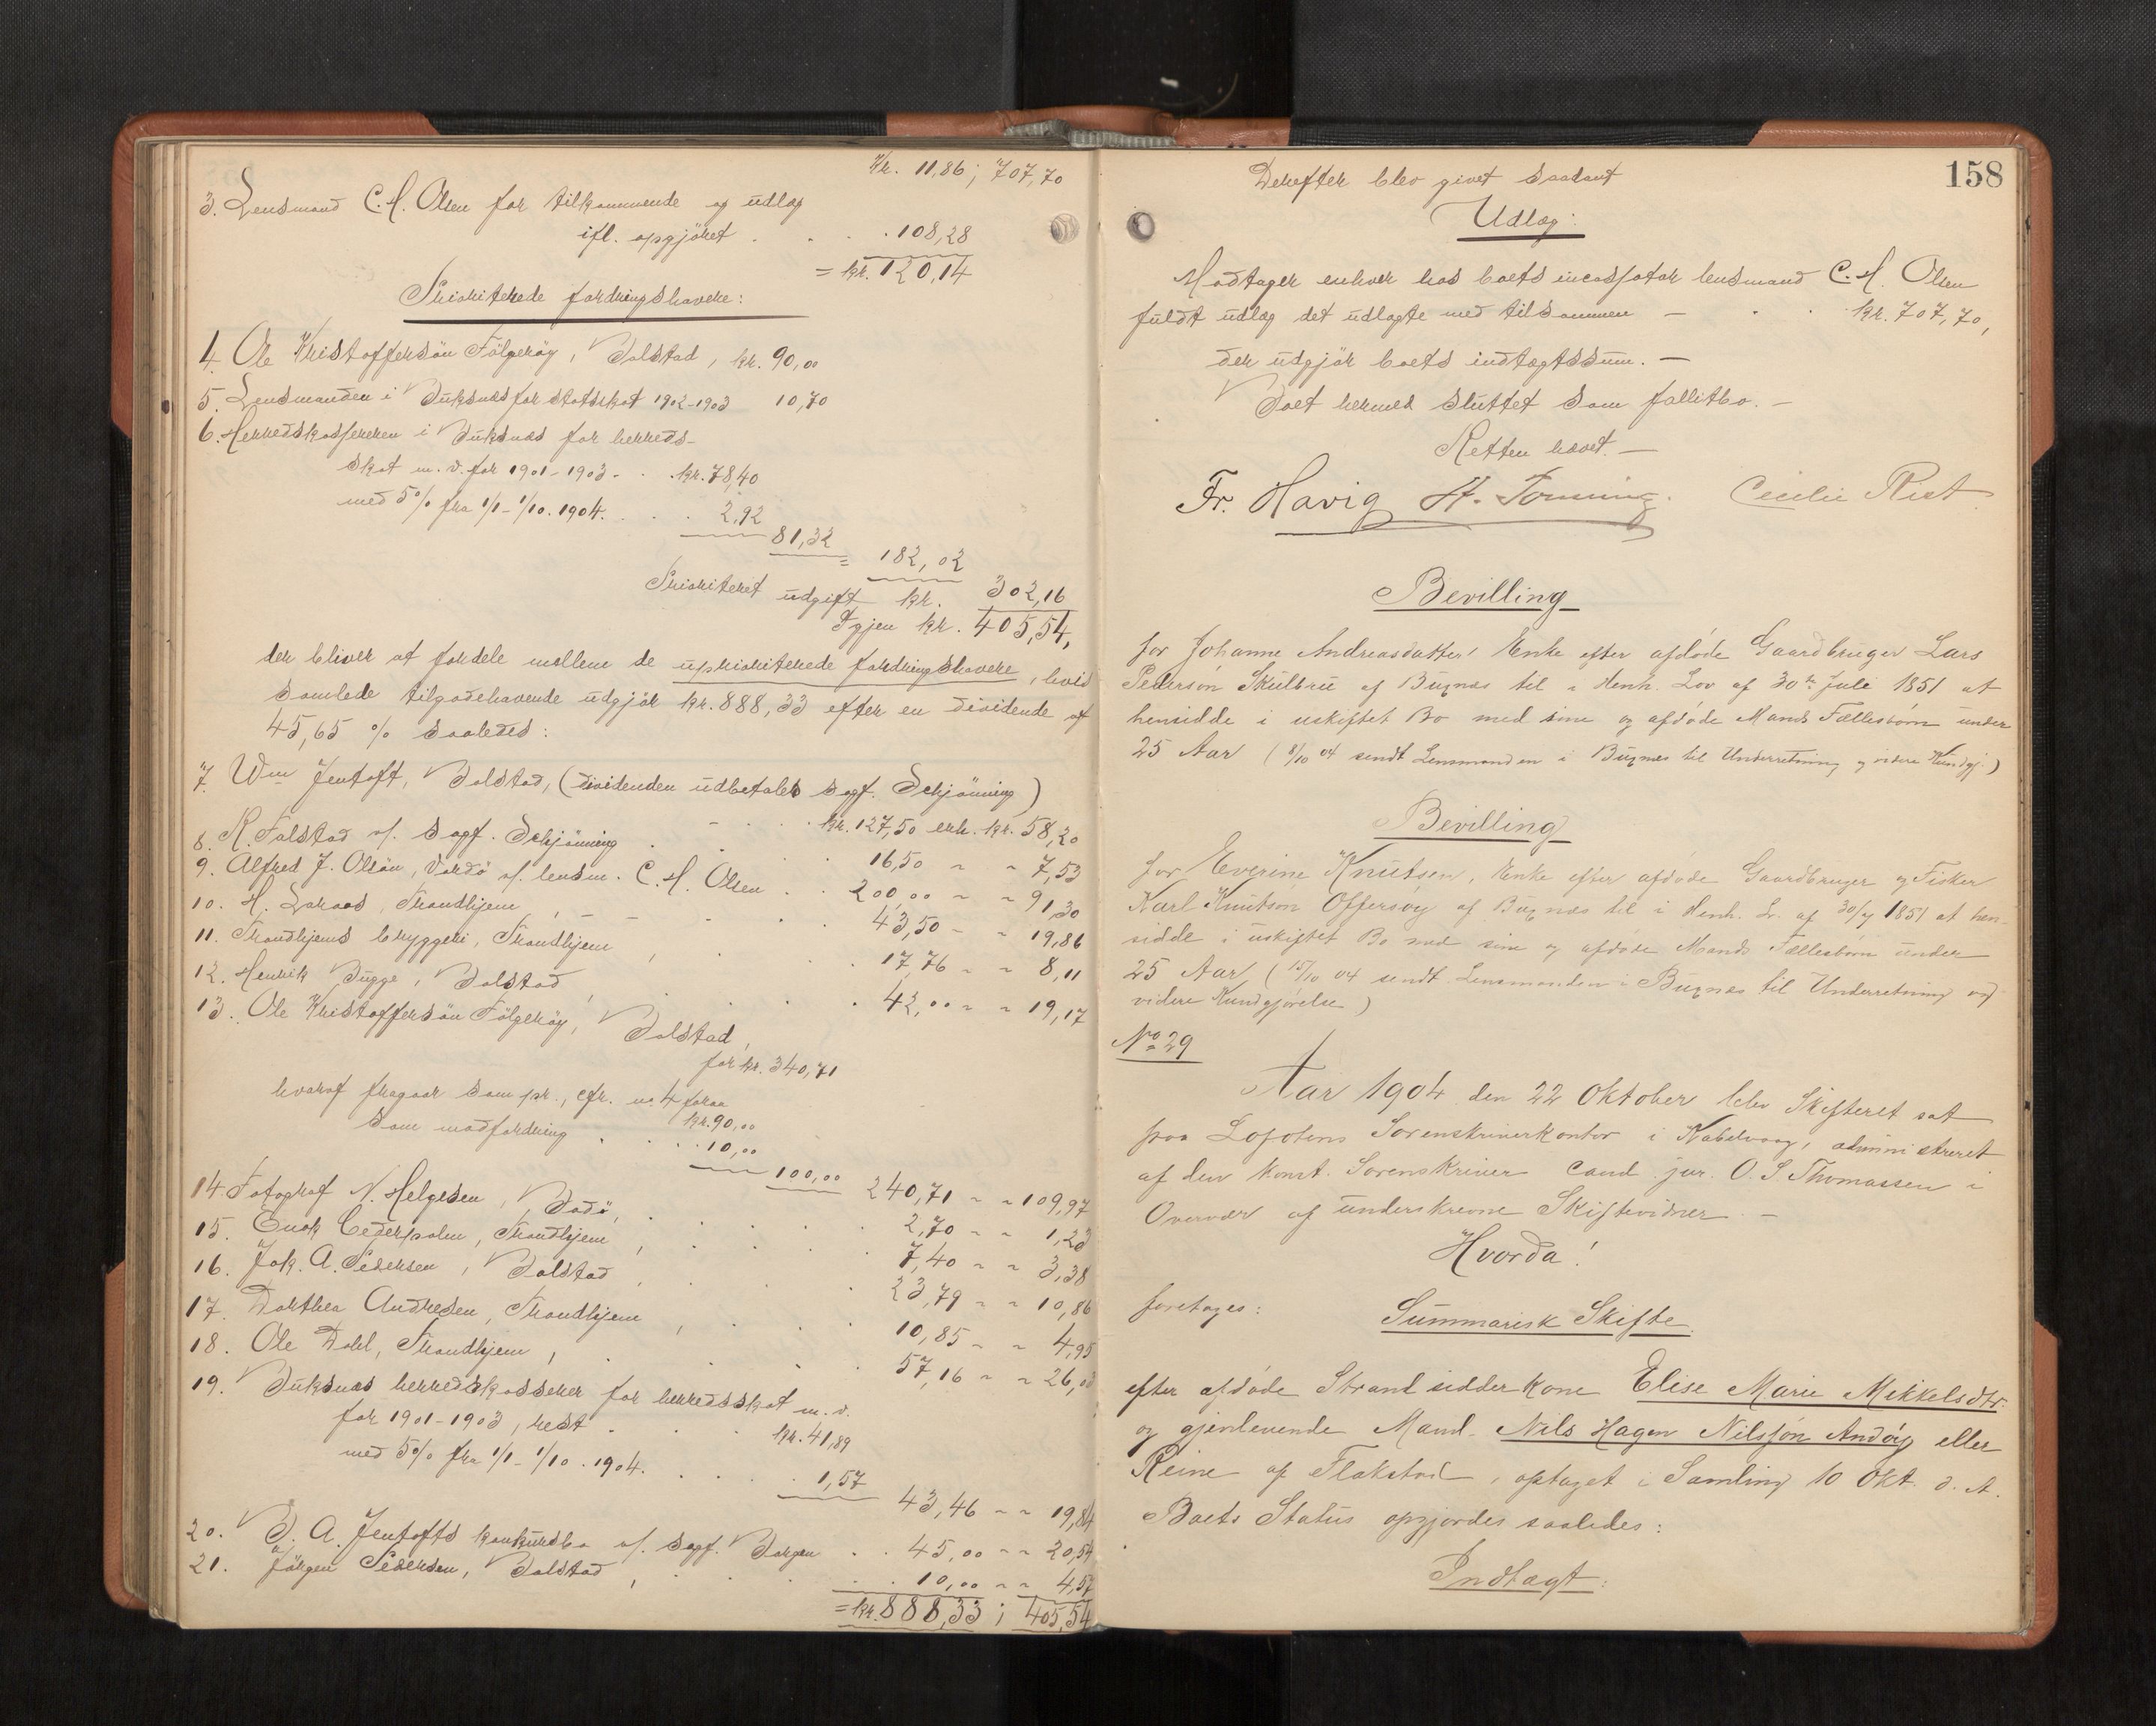 Kr. 11,86; 707,70
3. Lensmand C. M. Olsen for tilkommende og udlæg
ifl. opgjöret . . . 108,28
= kr. 120,14
Prioriterede fordringshavere:
4. Ole Kristoffersön Fölgeröy, Bolstad, kr. 90,00
5. Lensmanden i Buksnæs for statsskat 1902-1903 10,70
6. Herredskasserern i Buksnæs for herreds-
skat m. v. for 1901-1903 - . . kr. 78,40
med 5% fra 1/1 - 1/10. 1904. . . . 2,92
81,32 = 182,02
Prioriteret udgift kr. 302,16
Igjen kr. 405,54,
der bliver at fordele mellem de uprioriterede fordringshavere, hvis
samlede tilgodehavende udgjör kr. 888,33 efter en dividende af
45,65 % saaledes:
7. Wm Jentoft, Bolstad, (dividenden udbetales sagf. Schjönning)
kr. 127,50 erh. kr. 58,20
8. R. Falstad v/ sagf. Schjönning . . . 16,50 " " 7,53
9. Alfred J. Olsön, Vardö v/ lensm. C. M. Olsen . . 200,00 " " 91,30
10. H. , Trondhjem, - - . 43,50 " " 19,86
11. Trondhjems bryggeri, Trondhjem, . . 17,76 " " 8,11
12. Henrik Bugge, Bolstad, . . . 42,00 " " 19,17
13. Ole Kristoffersön Fölgeröy, Bolstad,
for kr. 340,71
hvoraf fragaar som pr., cfr. no. 4 foran
kr. 90,00
som modfordring . . . 10,00
100,00 240,71 " " 109,97
14. Fotograf N. Helgesen, Bodö, . . . 2,70 " " 1,23
15. Enok Cederholm, Trondhjem, . . . 7,40 " " 3,38
16. Joh. A. Pedersen, Bolstad, . . . 23,79 " " 10,86
17. Dorthea Andresen, Trondhjem, . . . 10,85 " " 4,95
18. Ole Dahl, Trondhjem, . . . 57,16 " " 26,08
19. Buksnæs herredskasserer for herredsskat m. v.
for 1901-1903, rest . . . kr. 41,89
med 5% fra 1/1 - 1/10. 1904. . . . 1,57
43,46 " " 19,84
20. B. A. Jentofts konkursbo v/ sagf. Borgen . . 45,00 " " 20,54
21. Jörgen Pedersen, Bolstad, . . . 10,00 " " 4,57
= kr. 888,33; 405,54
158
Derefter blev givet saadant
Udlæg:
Modtager enhver hos boets incassator lensmand C. M. Olsen
fuldt udlæg det udlagte med tilsammen - . . kr. 707,70,
der udgjör boets indtægtssum. -
Boet hermed sluttet som fallitbo. -
Retten hævet. -
Fr. Havig H. Tønning. Cecilie Rist
Bevilling
for Johanne Andreasdatter Enke efter afdøde Gaardbruger Lars
Pedersøn Skulbru af Buxnæs til i Henh. Lov af 30te Juli 1851 at
hensidde i uskiftet Bo med sine og afdøde Mands Fællesbørn under
25 Aar (8/10 04 sendt Lensmanden i Buxnæs til Underretning og videre Kundgj.)
Bevilling
for Everine Knutsen, Enke efter afdøde Gaardbruger og Fisker
Karl Knutsøn Offersøy af Buxnæs til i Henh. L. af 30/7 1851 at hen-
sidde i uskiftet Bo med sine og afdøde Mands Fællesbørn under
25 Aar (15/10 04 sendt Lensmanden i Buxnæs til Underretning og
videre Kundgjørelse)
No 29
Aar 1904 den 22 Oktober blev Skifteret sat
paa Lofotens Sorenskriverkontor i Kabelvaag, administreret
af den konst. Sorenskriver Cand. jur. O. S. Thomassen i
Overvær af underskrevne Skiftevidner. -
Hvorda!
foretoges:
Summarisk Skifte
efter afdøde Strandsidderkone Elise Marie Mikkelsdtr.
og gjenlevende Mand Nils Hagen Nilssøn Andøy eller
Reine af Flakstad, optaget i Samling 10 Okt. d. A.
Boets Status opgjordes saaledes:
Indtægt: